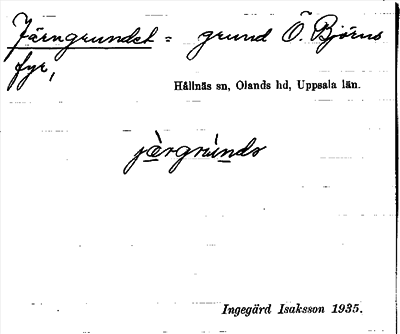 Järngrundet = grund Ö. Björns
fyr,
Hållnäs sn, Olands hd, Uppsala län.
jèrgrúndo
Ingegärd Isaksson 1935.